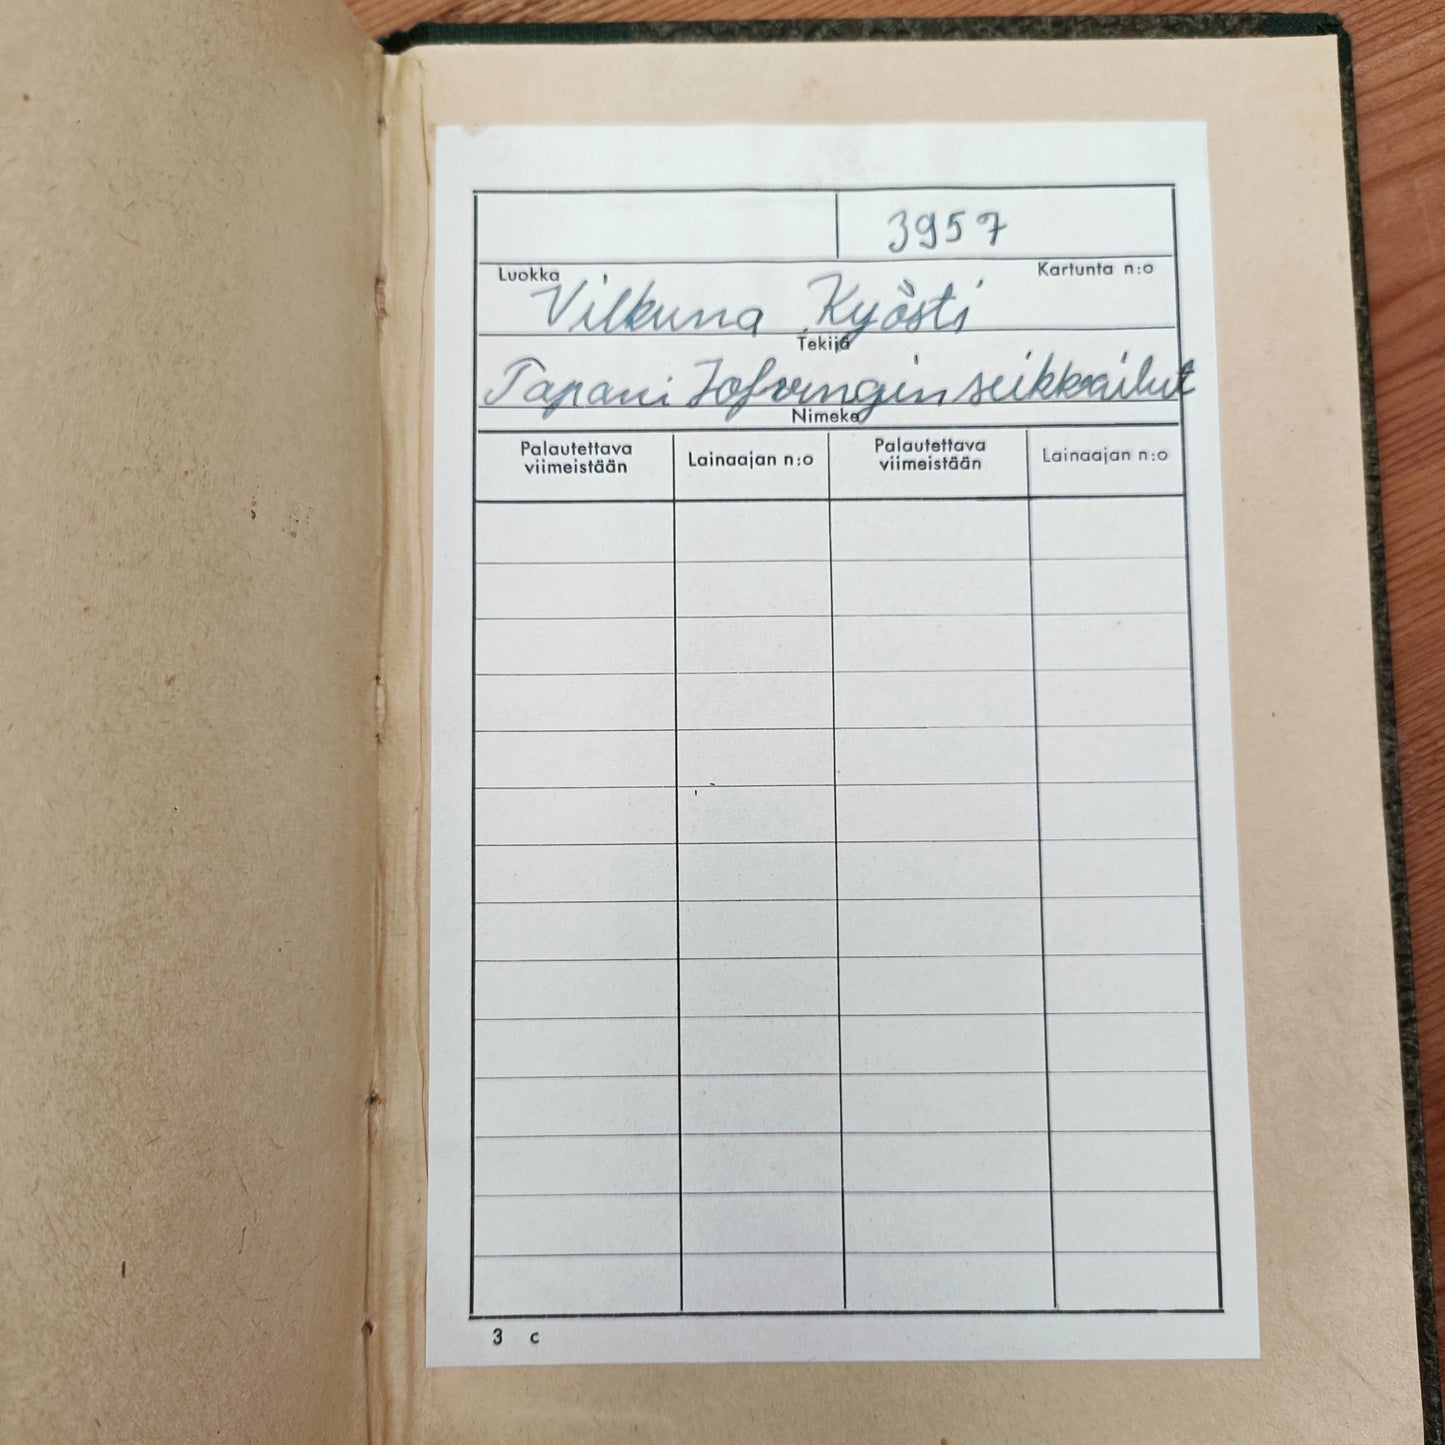 3957
Luokka Kartunta n:o
Vilkuna Kyösti
Tekijä
Tapani Löfvingin seikkailut
Nimeke
Palautettava viimeistään Lainaajan n:o Palautettava viimeistään Lainaajan n:o
3 c